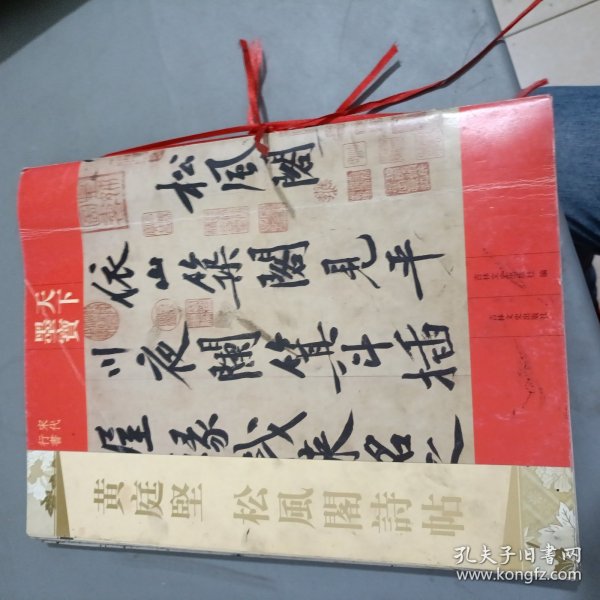 松風閣
依山築閣見平
川夜闌箕斗插
屋椽我來名之
天下
墨寶
宋代
行書
吉林文史出版社 編
吉林文史出版社
黄庭堅 松風閣詩帖
孔夫子旧书网
www.kongfz.com